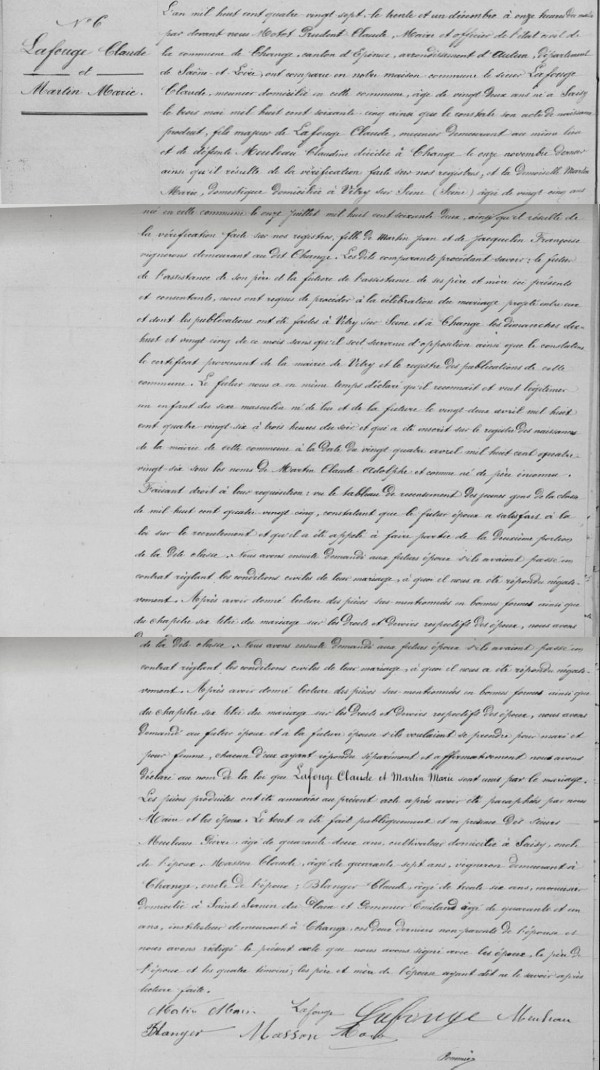 N° 6
Lafouge Claude
et
Martin Marie.
L'an mil huit cent quatre vingt sept, le trente et un décembre à onze heures du matin
par devant nous Motot Prudent Claude, Maire et officier de l'état civil de
la commune de Change, canton d'Epinac, arrondissement d'Autun, département
de Saône et Loire, ont comparu en notre maison commune le sieur Lafouge
Claude, meunier domicilié en cette commune, âgé de vingt deux ans né à Saisy
le trois mai mil huit cent soixante cinq ainsi que le constate son acte de naissance
produit, fils majeur de Lafouge Claude, meunier demeurant au même lieu
et de défunte Meuleau Claudine décédée à Change le onze novembre dernier
ainsi qu'il résulte de la vérification faite sur nos registres, et la demoiselle Martin
Marie, domestique domiciliée à Vitry sur Seine (Seine) âgée de vingt cinq ans
née en cette commune le onze juillet mil huit cent soixante deux, ainsi qu'il résulte de
la vérification faite sur nos registres, fille de Martin Jean et de Jacquelin Françoise
vignerons demeurant au dit Change. Les dits comparants procédant savoir : le futur
de l'assistance de son père et la future de l'assistance de ses père et mère ici présents
et consentants, nous ont requis de procéder à la célébration du mariage projeté entre eux
et dont les publications ont été faites à Vitry sur Seine et à Change les dimanches dix-
huit et vingt cinq de ce mois sans qu'il soit survenu d'opposition ainsi que le constatent
le certificat provenant de la mairie de Vitry et le registre des publications de cette
commune. Le futur nous a en même temps déclaré qu'il reconnait et veut légitimer
un enfant du sexe masculin né de lui et de la future le vingt deux avril mil huit
cent quatre vingt six à trois heures du soir et qui a été inscrit sur le registre des naissances
de la mairie de cette commune à la date du vingt quatre avril mil huit cent quatre-
vingt six sous les noms de Martin Claude Adolphe et comme né de père inconnu.
Faisant droit à leur requisition : vu le tableau de recensement des jeunes gens de la classe
de mil huit cent quatre vingt cinq, constatant que le futur époux a satisfait à la
loi sur le recrutement et qu'il a été appelé à faire partie de la deuxième portion
de la dite classe. Nous avons ensuite demandé aux futurs époux s'ils avaient passé un
contrat réglant les conditions civiles de leur mariage, à quoi il nous a été répondu négati-
vement. Après avoir donné lecture des pièces sus-mentionnées en bonnes formes ainsi que
du chapitre six titre du mariage sur les Droits et Devoirs respectifs des époux, nous avons
de la dite classe. Nous avons ensuite demandé aux futurs époux s'ils avaient passé un
contrat réglant les conditions civiles de leur mariage, à quoi il nous a été répondu négati-
vement. Après avoir donné lecture des pièces sus-mentionnées en bonnes formes ainsi que
du chapitre six titre du mariage sur les Droits et Devoirs respectifs des époux, nous avons
demandé au futur époux et à la future épouse s'ils voulaient se prendre pour mari et
pour femme, chacun d'eux ayant répondu séparément et affirmativement nous avons
déclaré au nom de la loi que Lafouge Claude et Martin Marie sont unis par le mariage.
Les pièces produites ont été annexées au présent acte après avoir été paraphées par nous
Maire et les époux. Le tout a été fait publiquement et en présence des sieurs
Meuleau Pierre, âgé de quarante deux ans, cultivateur domicilié à Saisy, oncle
de l'époux, Masson Claude, âgé de quarante sept ans, vigneron demeurant à
Change, oncle de l'épouse ; Blanger Claude, âgé de trente six ans, menuisier
domicilié à Saint Sernin du Plain et Pommier âgé de quarante et un
ans, instituteur demeurant à Change, ces deux derniers non parents de l'épouse et
nous avons rédigé le présent acte que nous avons signé avec les époux, le père de
l'époux et les quatre témoins ; les père et mère de l'épouse ayant dit ne le savoir après
lecture faite.
Martin Marie Lafouge Lafouge Meuleau
Blanger Masson Motot
Pommier